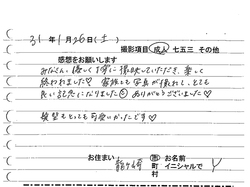 31年1月26日(土)
撮影項目 成人 七五三 その他
感想をお願いします
みなさん、優しく丁寧に撮影していただき、楽しく
終われました♡ 家族とも写真が撮れて、とても
良い記念になりました☺ ありがとうございました♡
髪型もとっても可愛いかったです♡
お住まい 龍ヶ崎 市 町 村 お名前 イニシャルで Y